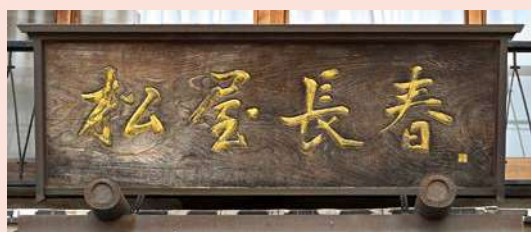 松屋長春